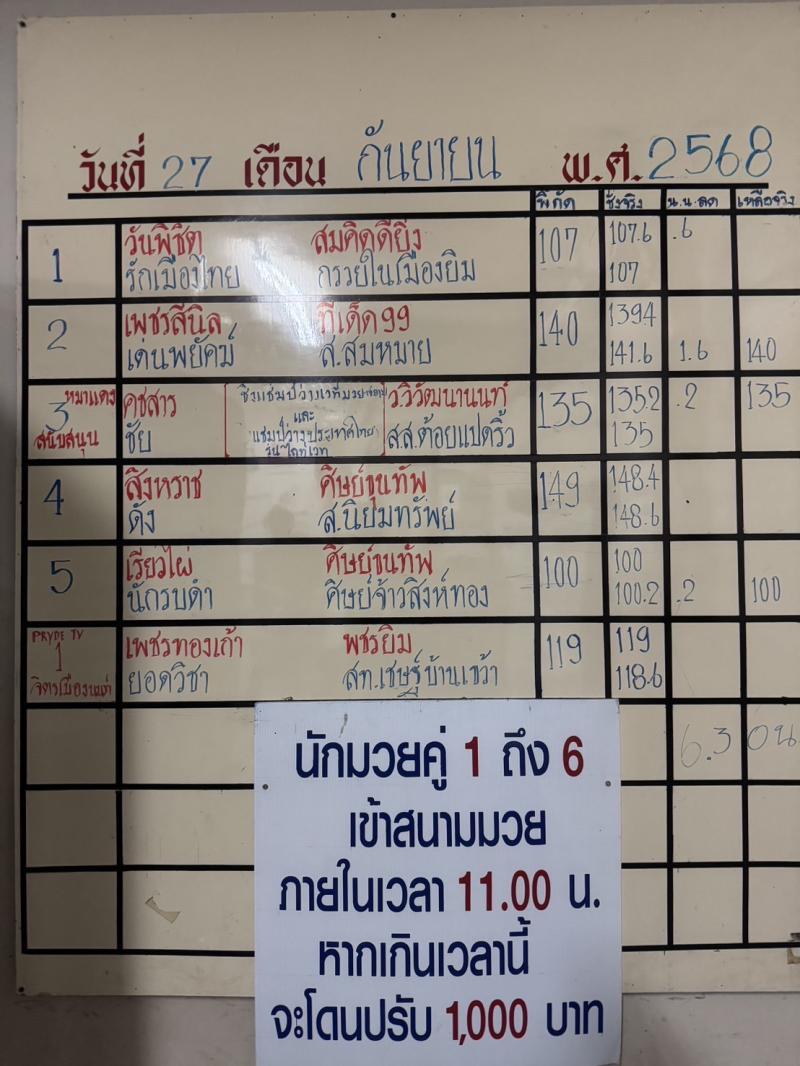 วันที่ 27 เดือน กันยายน พ.ศ. 2568
พิกัด ชั่งจริง น.น.ลด เหลือจริง
1 วันพิชิต สมคิดดียิ่ง 107 107.6 .6
รักเมืองไทย กรวยในเมืองยิม 107
2 เพชรสีนิล ทีเด็ด99 140 139.4
เด่นพยัคฆ์ ส.สมหมาย 141.6 1.6 140
3 หมาแดง คชสาร ชิงแชมป์ว่างเวทีมวย ว.วิวัฒนานนท์ 135 135.2 .2 135
และ
สนับสนุน ชัย แชมป์ว่างประเทศไทย สส.ต้อยแปดริ้ว 135
รุ่น ไลท์เวท
4 สิงหราช ศิษย์ขุนทัพ 149 148.4
ดัง ส.นิยมทรัพย์ 148.6
5 เรียวไผ่ ศิษย์ขุนทัพ 100 100
นักรบดำ ศิษย์จ้าวสิงห์ทอง 100.2 .2 100
PRYDE TV
1 เพชรทองเก้า พชรยิม 119 119
จิตรเมืองนนท์ ยอดวิชา สท.เชษฐ์บ้านเขว้า 118.6
6.3 อน
นักมวยคู่ 1 ถึง 6
เข้าสนามมวย
ภายในเวลา 11.00 น.
หากเกินเวลานี้
จะโดนปรับ 1,000 บาท